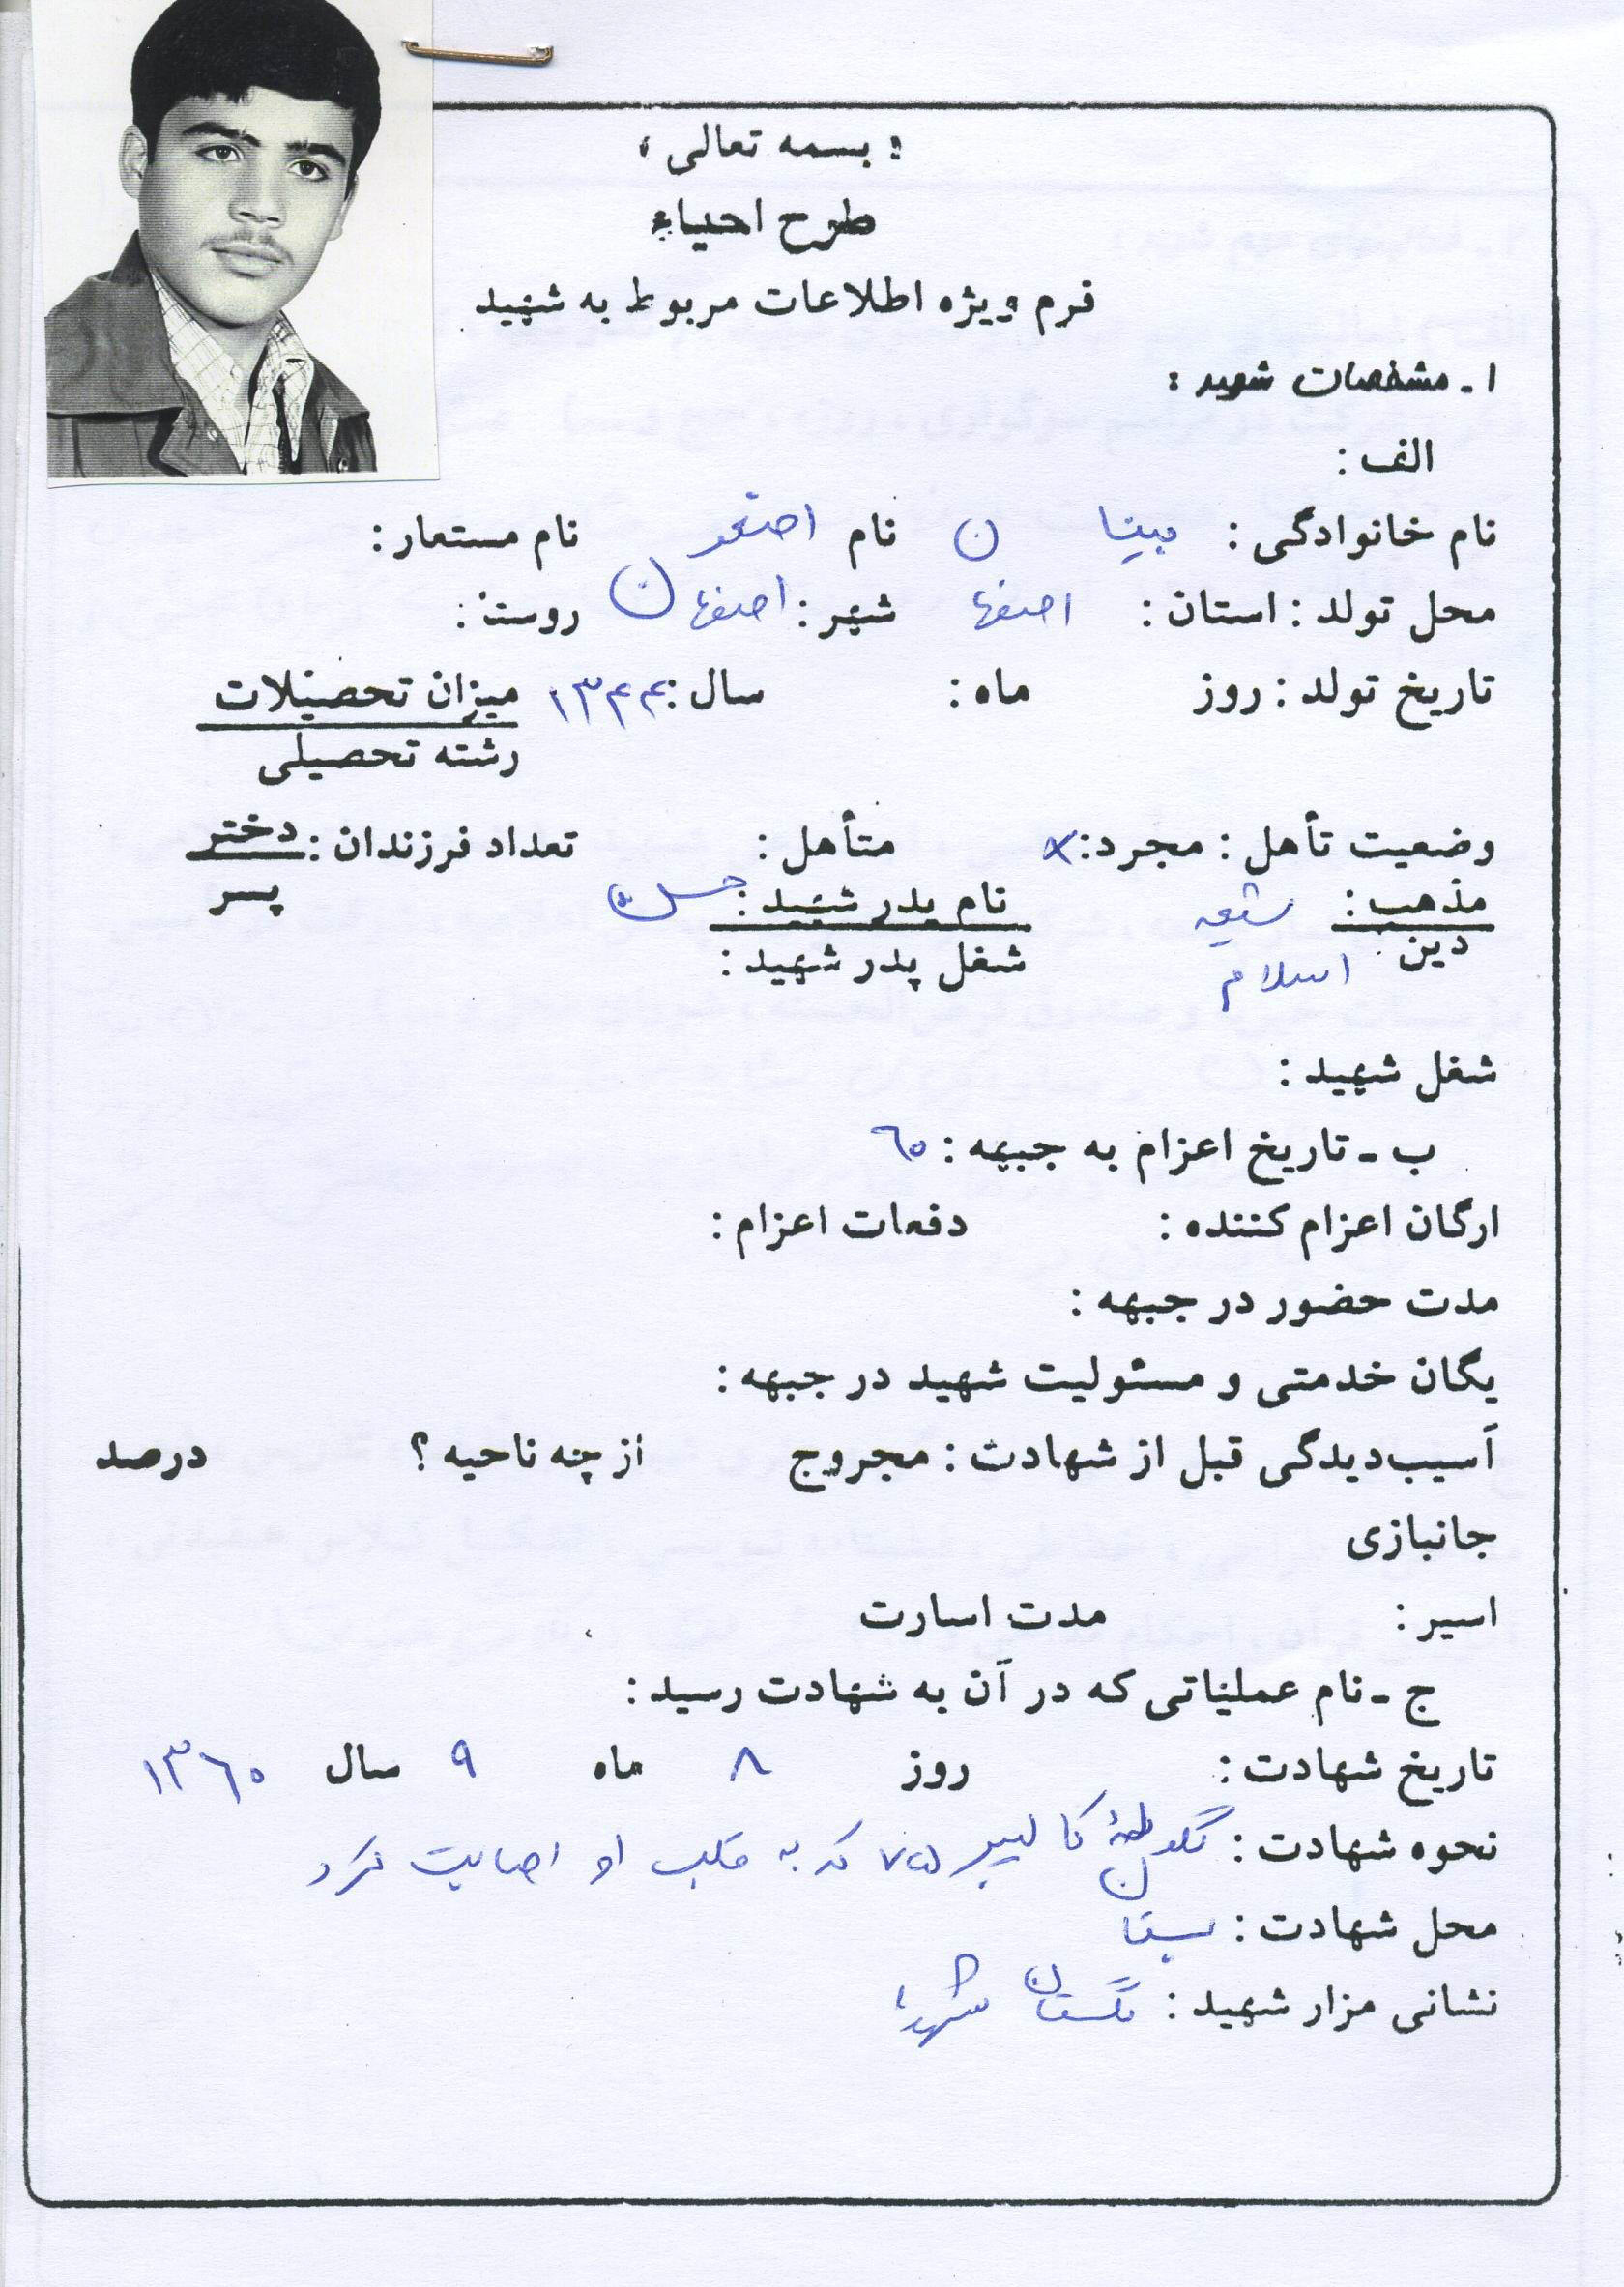 « بسمه تعالی »
طرح احیاء
فرم ویژه اطلاعات مربوط به شهید
۱ـ مشخصات شهید :
الف :
نام خانوادگی : بینا ن نام اصغر نام مستعار :
محل تولد : استان : اصفها شهر : اصفهان روستا :
تاریخ تولد : روز ماه : سال : ۱۳۴۴ میزان تحصیلات
رشته تحصیلی
وضعیت تأهل : مجرد : × متأهل : تعداد فرزندان : دختر
پسر
مذهب : شیعه نام پدر شهید : حسن
دین اسلام شغل پدر شهید :
شغل شهید :
ب ـ تاریخ اعزام به جبهه : ۶۰
ارگان اعزام کننده : دفعات اعزام :
مدت حضور در جبهه :
یگان خدمتی و مسئولیت شهید در جبهه :
آسیب‌دیدگی قبل از شهادت : مجروح از چه ناحیه ؟ درصد
جانبازی
اسیر : مدت اسارت
ج ـ نام عملیاتی که در آن به شهادت رسید :
تاریخ شهادت : روز ۸ ماه ۹ سال ۱۳۶۰
نحوه شهادت : گلوله کالیبر ۷۵ که به قلب او اصابت کرد
محل شهادت : بستان
نشانی مزار شهید : گلستان شهدا